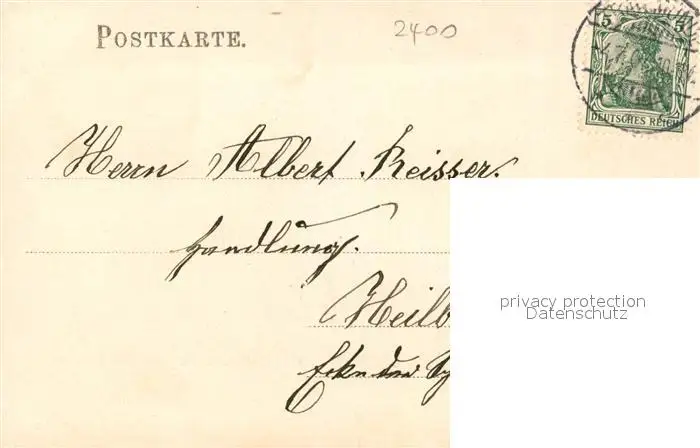 POSTKARTE.
2400
5 5
DEUTSCHES REICH
Herrn Albert Reisser.
Handlung.
Heilb
Ecke der
privacy protection
Datenschutz